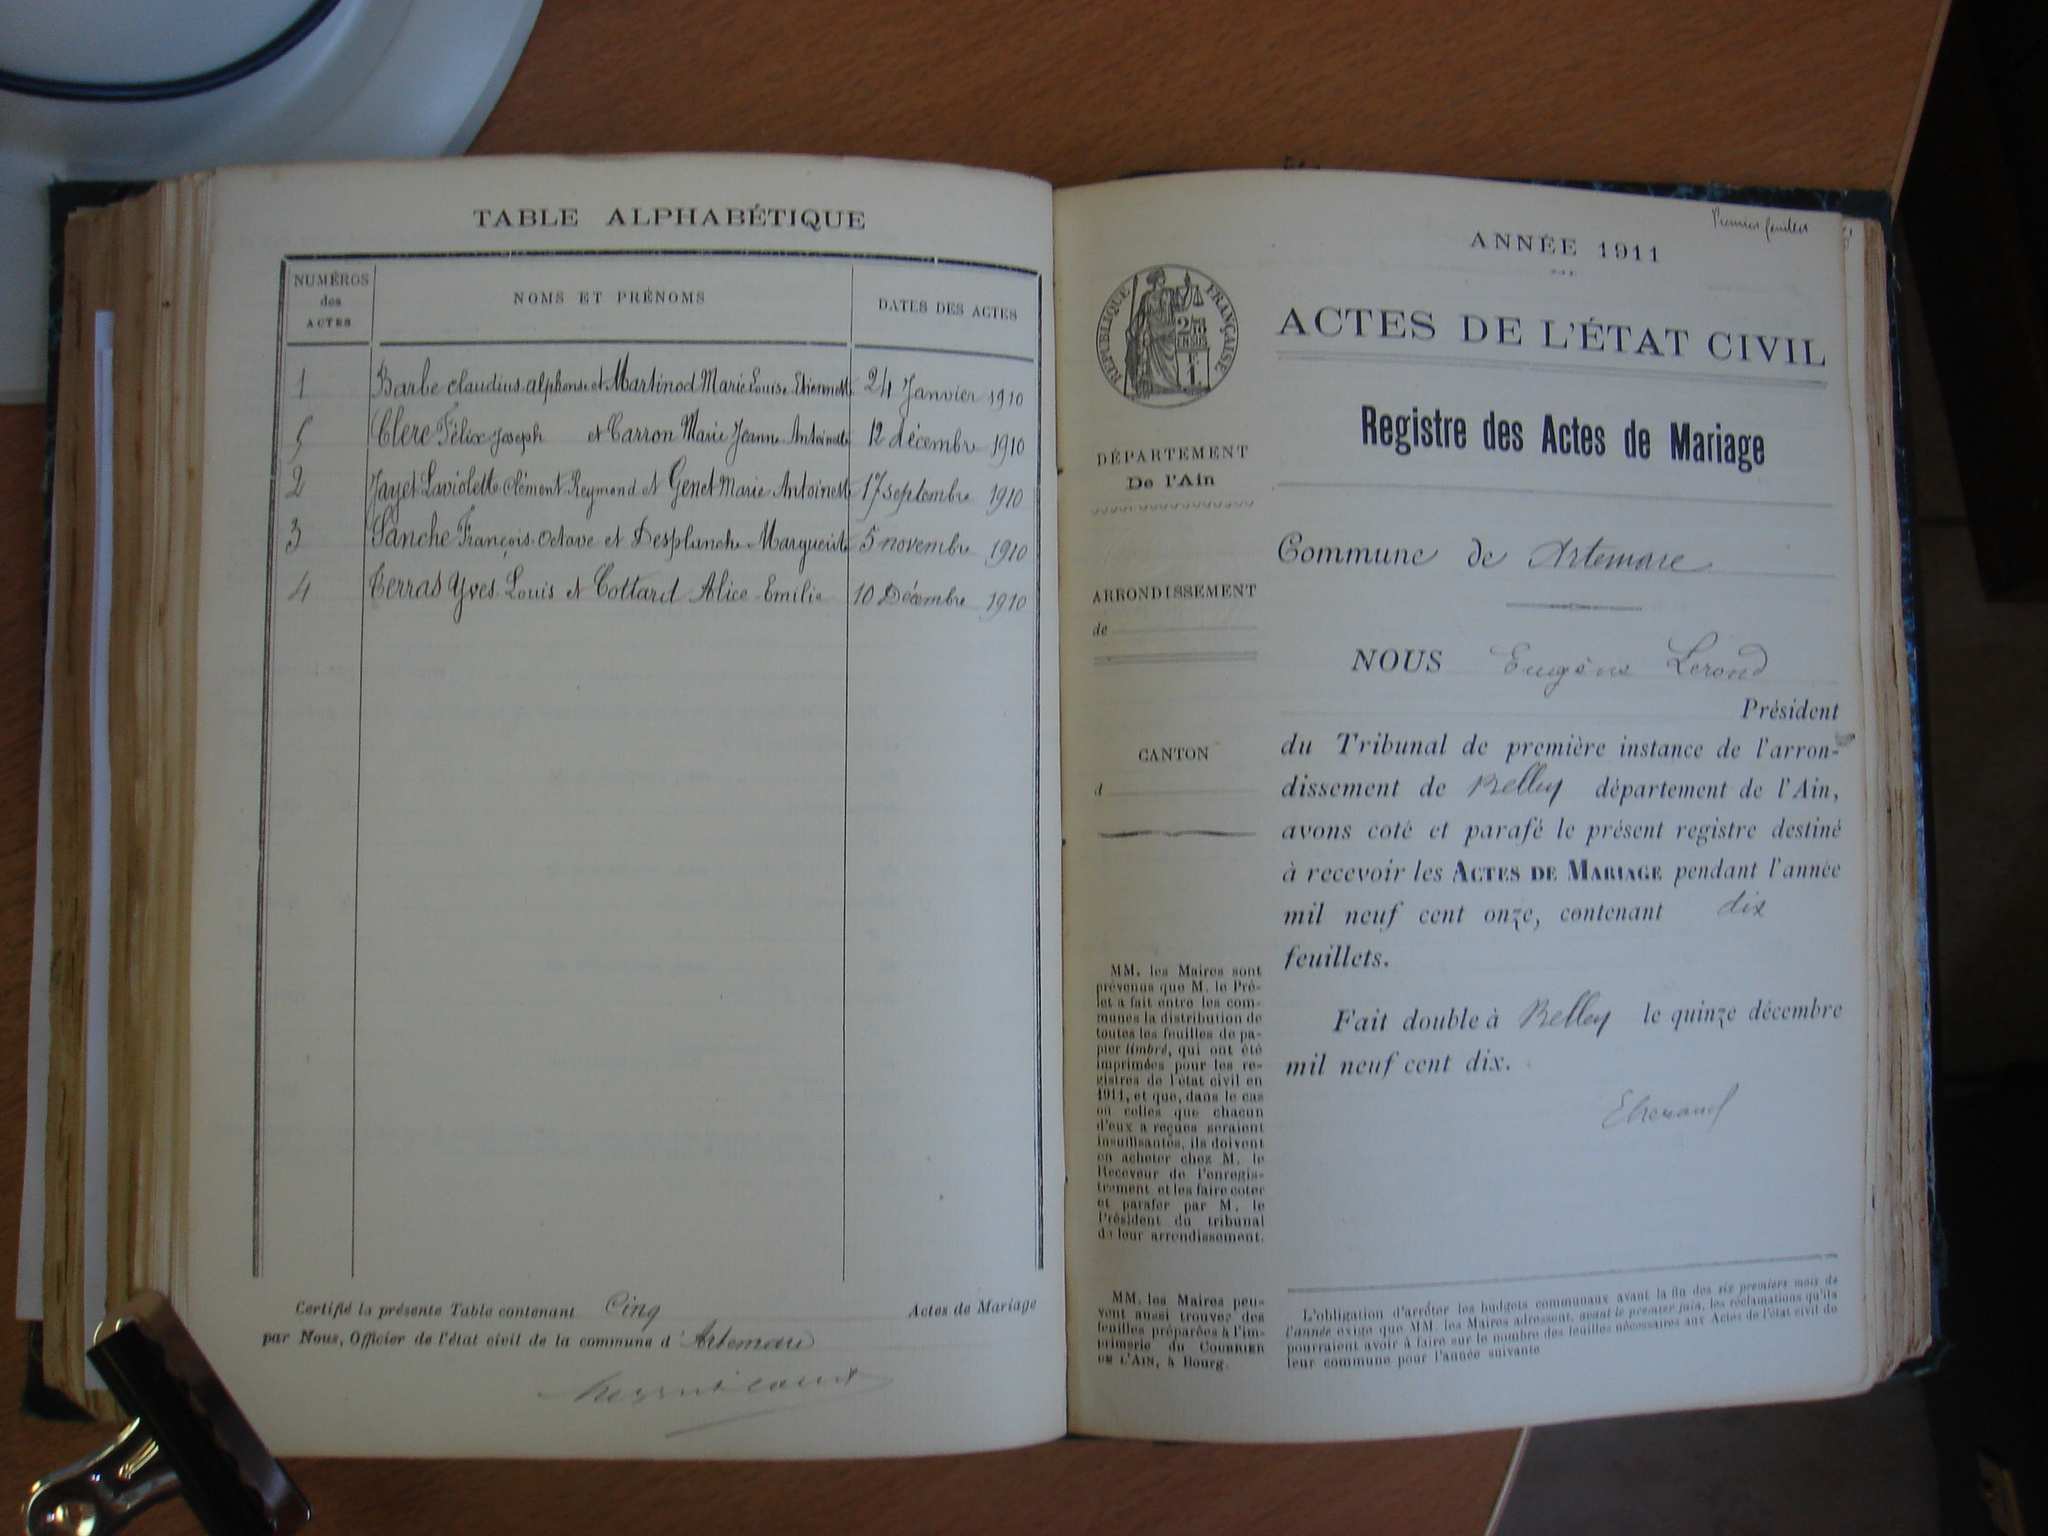 TABLE ALPHABÉTIQUE
NUMÉROS des ACTES
NOMS ET PRÉNOMS
DATES DES ACTES
1 Barbe Claudius Alphonse et Martinod Marie Louise Etiennette 24 Janvier 1910
5 Clere Félix Joseph et Carron Marie Jeanne Antoinette 12 décembre 1910
2 Jayet Laviolette Clément Reymond et Genet Marie Antoinette 17 septembre 1910
3 Sanche François Octave et Desplanche Marguerite 5 novembre 1910
4 Terras Yves Louis et Cottard Alice Emilie 10 Décembre 1910
Certifié la présente Table contenant Cinq Actes de Mariage
par Nous, Officier de l'état civil de la commune d'Artemare
Premier feuillet
ANNÉE 1911
RÉPUBLIQUE FRANÇAISE
ACTES DE L'ÉTAT CIVIL
Registre des Actes de Mariage
DÉPARTEMENT
De l'Ain
Commune de Artemare
ARRONDISSEMENT
de
CANTON
d
NOUS Eugène Lerond
Président
du Tribunal de première instance de l'arron-
dissement de Belley département de l'Ain,
avons coté et parafé le présent registre destiné
à recevoir les ACTES DE MARIAGE pendant l'année
mil neuf cent onze, contenant dix
feuillets.
Fait double à Belley le quinze décembre
mil neuf cent dix.
MM. les Maires sont
prévenus que M. le Pré-
fet a fait entre les com-
munes la distribution de
toutes les feuilles de pa-
pier timbré, qui ont été
imprimées pour les re-
gistres de l'état civil en
1911, et que, dans le cas
où celles que chacun
d'eux a reçues seraient
insuffisantes, ils doivent
en acheter chez M. le
Receveur de l'enregis-
trement et les faire coter
et parafer par M. le
Président du tribunal
de leur arrondissement.
MM. les Maires peu-
vent aussi trouver des
feuilles préparées à l'im-
primerie du COURRIER
DE L'AIN, à Bourg.
L'obligation d'arrêter les budgets communaux avant la fin des six premiers mois de
l'année exige que MM. les Maires adressent, avant le premier juin, les réclamations qu'ils
pourraient avoir à faire sur le nombre des feuilles nécessaires aux Actes de l'état civil de
leur commune pour l'année suivante